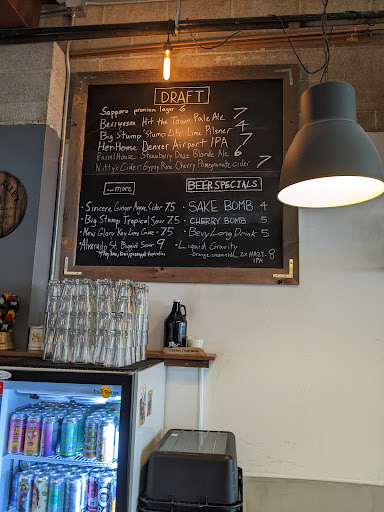 DRAFT
Sapporo premium lager 6
Berryessa Hit the Town Pale Ale 7
Big Stump 'Stump Lite Lime Pilsner 4
HenHouse Denver Airport IPA 7
Barrel House Strawberry Daze Blonde Ale 6
Nittys Cider Gypsy Rose Cherry Pomegranate Cider 7
...more
· Sincere Ginger Agua Cider 7.5
· Big Stump Tropical Sour 7.5
· New Glory Key Lime Gose - 7.5
· Alvarado St. Sour 9
BEER SPECIALS
· SAKE BOMB 4
· CHERRY BOMB 5
· Bevy Long Drink 5
· Liquid Gravity
- orange 2x HAZY - 8
IPA